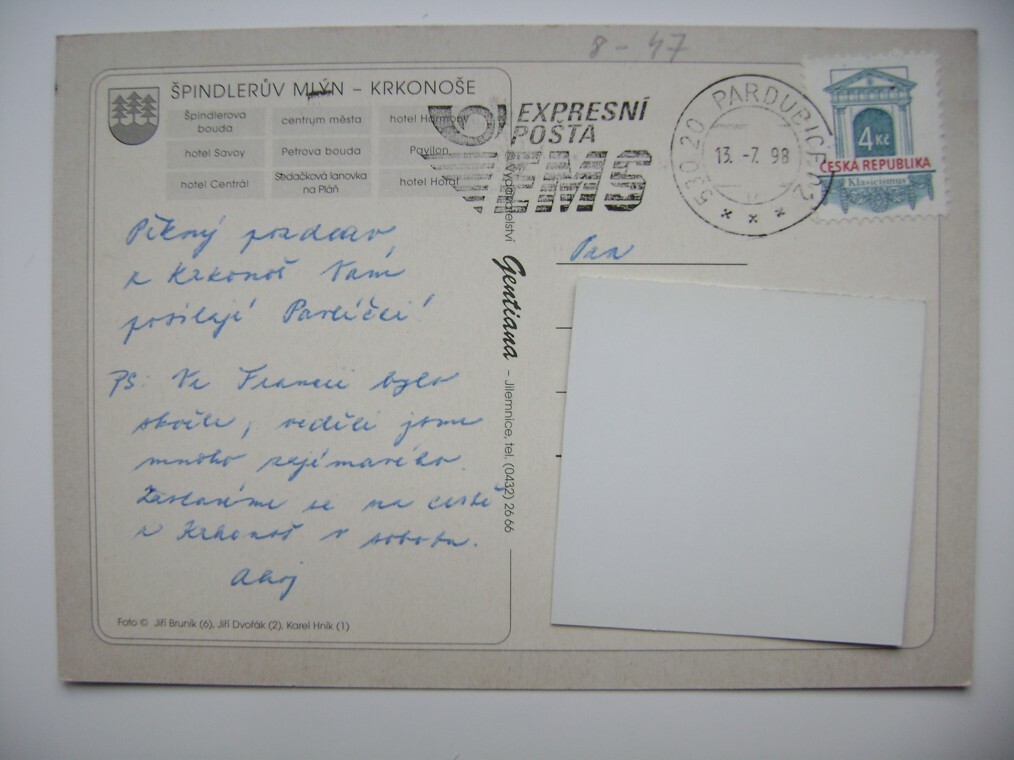 8 - 47
ŠPINDLERŮV MLÝN – KRKONOŠE
Špindlerova bouda
centrum města
hotel Harmony
hotel Savoy
Petrova bouda
Pavilon
hotel Centrál
Sedačková lanovka na Pláň
hotel Horal
EXPRESNÍ
POŠTA
EMS
530 20 PARDUBICE 2
13. -7. 98
4 Kč
ČESKÁ REPUBLIKA
Klasicismus
Pěkný pozdrav
z Krkonoš Vám
posílají Pavlíčci!
PS: Ve Francii bylo
skvěle, viděli jsme
mnoho zajímavého.
Zastavíme se na cestě
z Krkonoš v sobotu.
Ahoj
Foto © Jiří Bruník (6), Jiří Dvořák (2), Karel Hník (1)
Vydavatelství Gentiana – Jilemnice, tel. (0432) 26 66
Pan